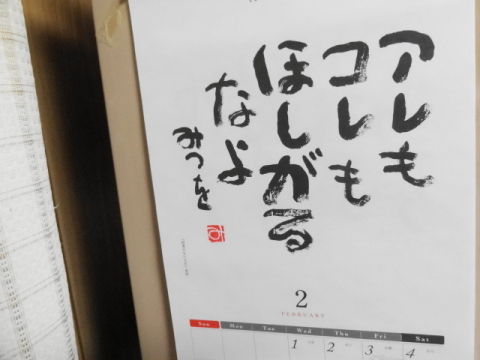 アレも
コレも
ほしがる
なよ
みつを
み
2
FEBRUARY
Sun Mon Tue Wed Thu Fri Sat
1 2 3 4